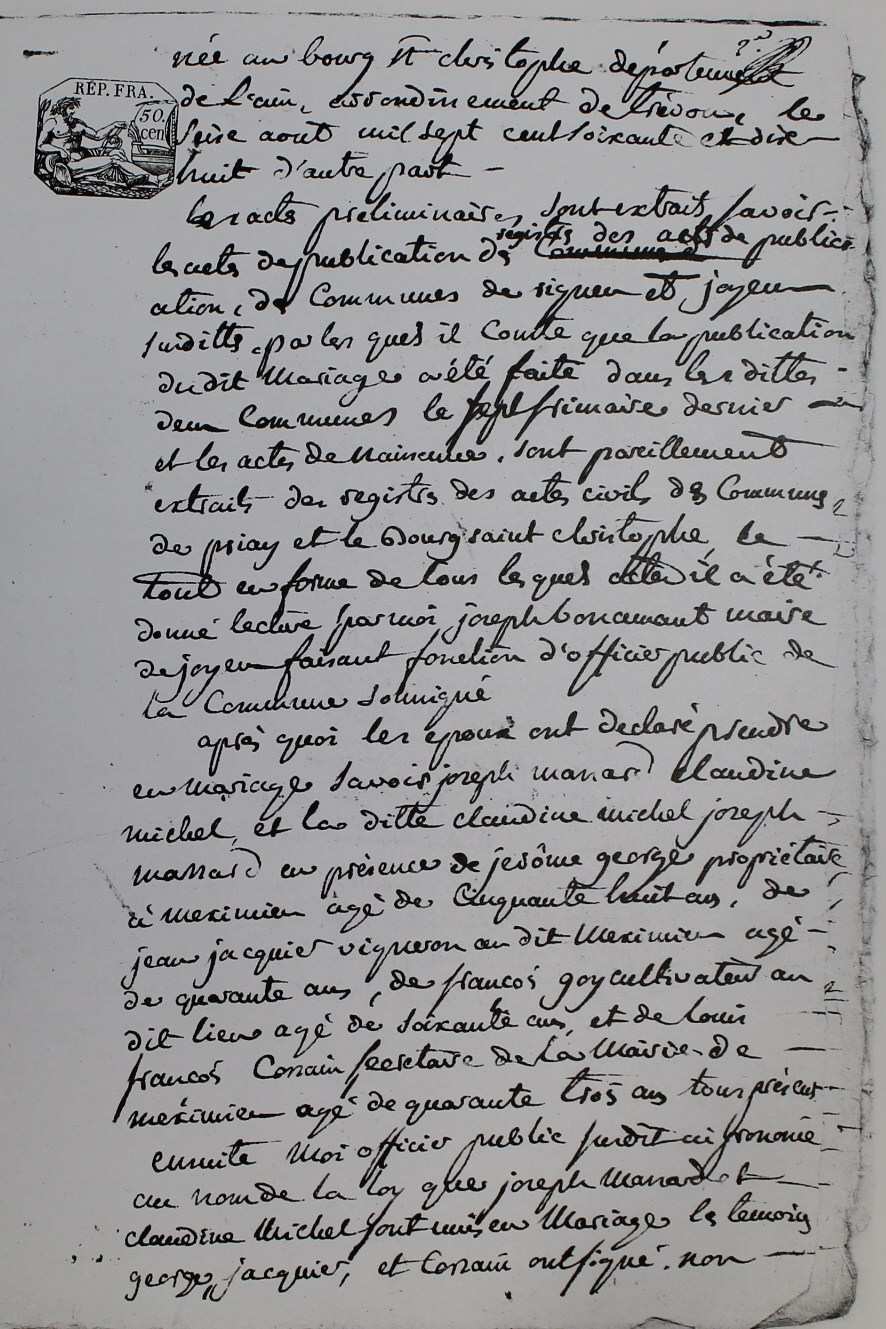 née au bourg st christophe département
RÉP. FRA.
50. cen
de l'ain, arrondinement de trévou, le
seise aout mil sept cent soixante et dix
huit d'autre part —
les acts préliminaires sont extrait savoir
les actes de publication des registres des actes de public
ation, des Communes de rigneu et joyeu
surditts, par les quels il Conste que la publication
du dit Mariage a été faite dans les dittes
deux Communes le sept frimaire dernier —
et les actes de Naissence, sont pareillement
extraits des registrs des actes civils des Communes
de priay et le Bourg saint christophe, le —
tout en forme de tous les quels actes il a été
donné lecture par moi joseph bonamant maire
de joyeu faisant fonction d'officier public de
la Commune soussigné
après quoi les epoux ont declaré prendre
en mariage savoir joseph massard claudine
michel, et la ditte claudine michel joseph
massard en présence de jerôme george propriétaire
à meximieu agé de Cinquante huit ans, de
jean jacquier vigneron au dit Meximieu agé
de quarante ans, de françois goy cultivateur au
dit lieu agé de soixante ans, et de louis
françois Corsain secretaire de la Mairie de
meximieu agé de quarante trois ans tous présens
ensuite Moi officier public susdit ai prononcé
au nom de la loy que joseph Massard et
claudine Michel sont unis en Mariage les temoins
george, jacquier, et Corsain ont signé. non —